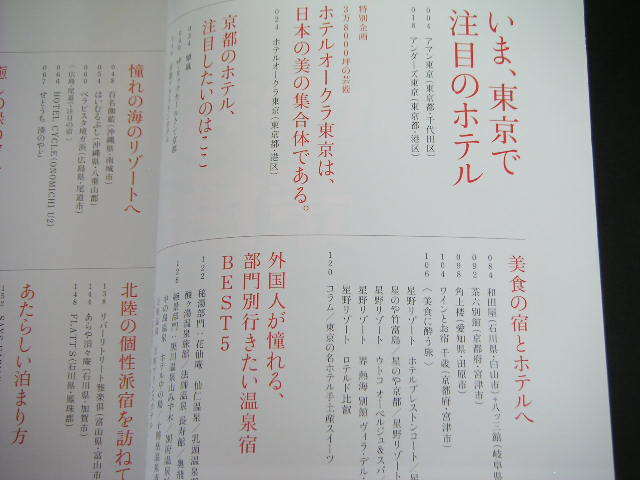 いま、東京で
注目のホテル
004 アマン東京(東京都・千代田区)
018 アンダーズ東京(東京都・港区)
特別企画
3万8000坪の芸術
ホテルオークラ東京は、
日本の美の集合体である。
024 ホテルオークラ東京(東京都・港区)
京都のホテル、
注目したいのはここ
憧れの海のリゾートへ
048 百名伽藍(沖縄県・南城市)
054 はいむるぶし(沖縄県・八重山郡)
060 ベラビスタ境ガ浜(広島県・尾道市)
〈広島・尾道で注目の宿〉
064 HOTEL CYCLE(ONOMICHI U2)
067 せとうち 湊のやど
美食の宿とホテルへ
084 和田屋(石川県・白山市)・八ッ三館(岐阜県
092 茶六別館(京都府・宮津市)
098 角上楼(愛知県・田原市)
104 ワインとお宿 千歳(京都府・宮津市)
106 〈美食に酔う旅〉
星野リゾート ホテルブレストンコート/星野
星のや竹富島/星のや京都/星野リゾート
星野リゾート ウトコ オーベルジュ&スパ/
星野リゾート 界 熱海 別館 ヴィラ・デル・
星野リゾート ロテルド比叡
120 コラム/東京の名ホテル手土産スイーツ
外国人が憧れる、
部門別行きたい温泉宿
BEST5
122 秘湯部門・花仙庵 仙仁温泉/乳頭温泉
酸ヶ湯温泉旅館/法師温泉 長寿館/奥飛
128
北陸の個性派宿を訪ねて
138 リバーリトリート雅樂倶(富山県・富山市
144 あらや滔々庵(石川県・加賀市)
148 PLATT'S(石川県・鳳珠郡)
あたらしい泊まり方
152